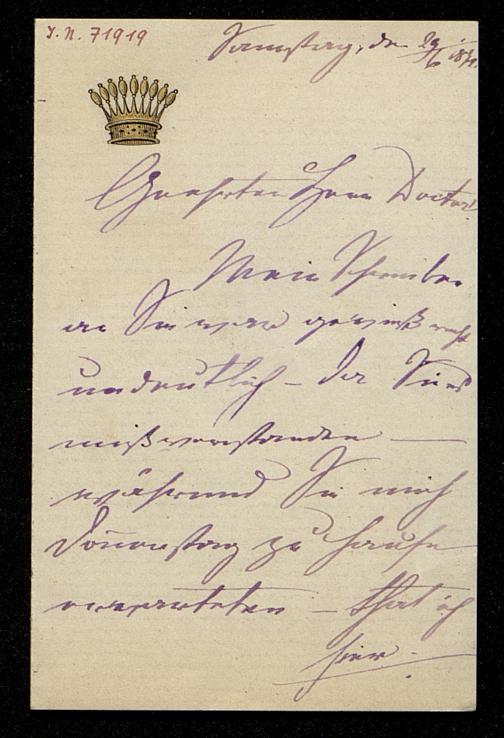 I. N. 71919
Samstag, den 29/6 18
Geehrter Herr Doctor!
Mein Schreiben
an Sie war gewiß recht
undeutlich – da Sie es
mißverstanden —
während Sie mich
Donnerstag zu Hause
erwarteten – that ich
hier.